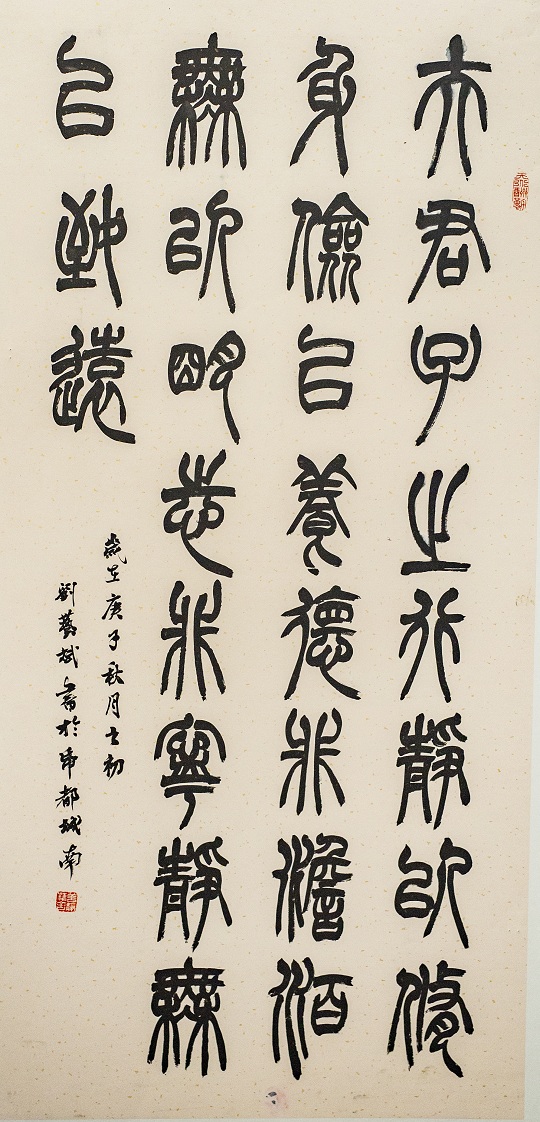 夫君子之行靜㠯修
身儉㠯養德非澹泊
無㠯明志非寧靜無
㠯致遠
歲在庚子秋月之初
劉藝斌書於帝都城南